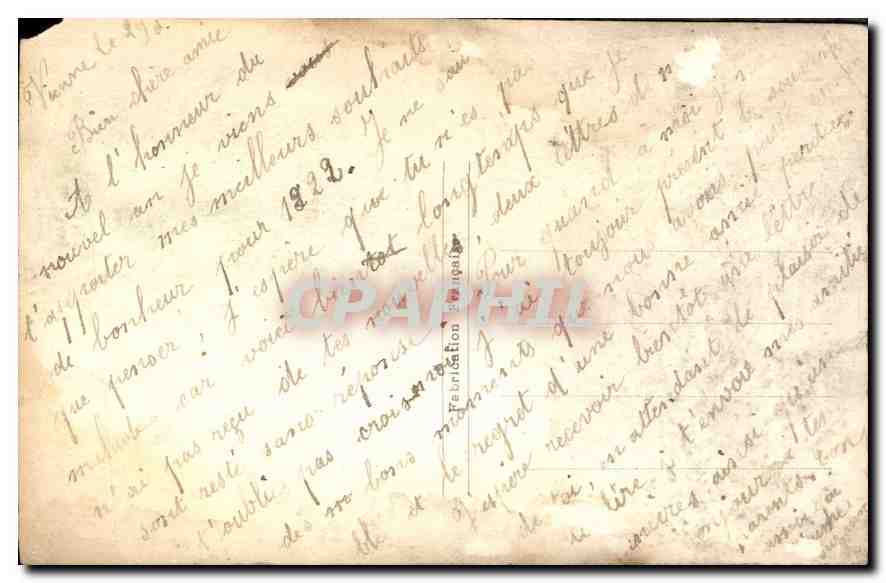 Vienne le 29 2
Bien chère amie
A l'honneur du
nouvel an je viens
t'apporter mes meilleurs souhaits
de bonheur pour 1922. Je ne sai
que penser, j'espère que tu n'es pas
malade car voici bien longtemps que je
n'ai pas reçu de tes nouvelles, deux lettres de
sont resté sans réponse. Pour quand a moi je
t'oublie pas crois moi j'ai toujour présent le souvenir
des bons moments que nous avons passé
et le regret d'une bonne amie perdue
J'espère recevoir bientôt une lettre
de toi, en attendant le plaisir de
te lire je t'envoie mes amitié
sincères ainsi qu'un
bonjour a tes
parents. Ton
Fabrication Française
CPAPHIL